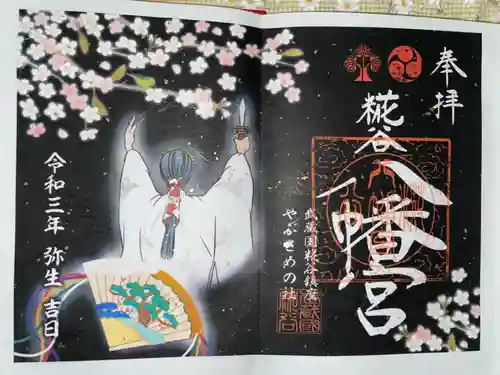 奉拝
糀谷
八幡宮
武蔵国糀谷鎮座
やぶさめの社
令和三年 弥生 吉日